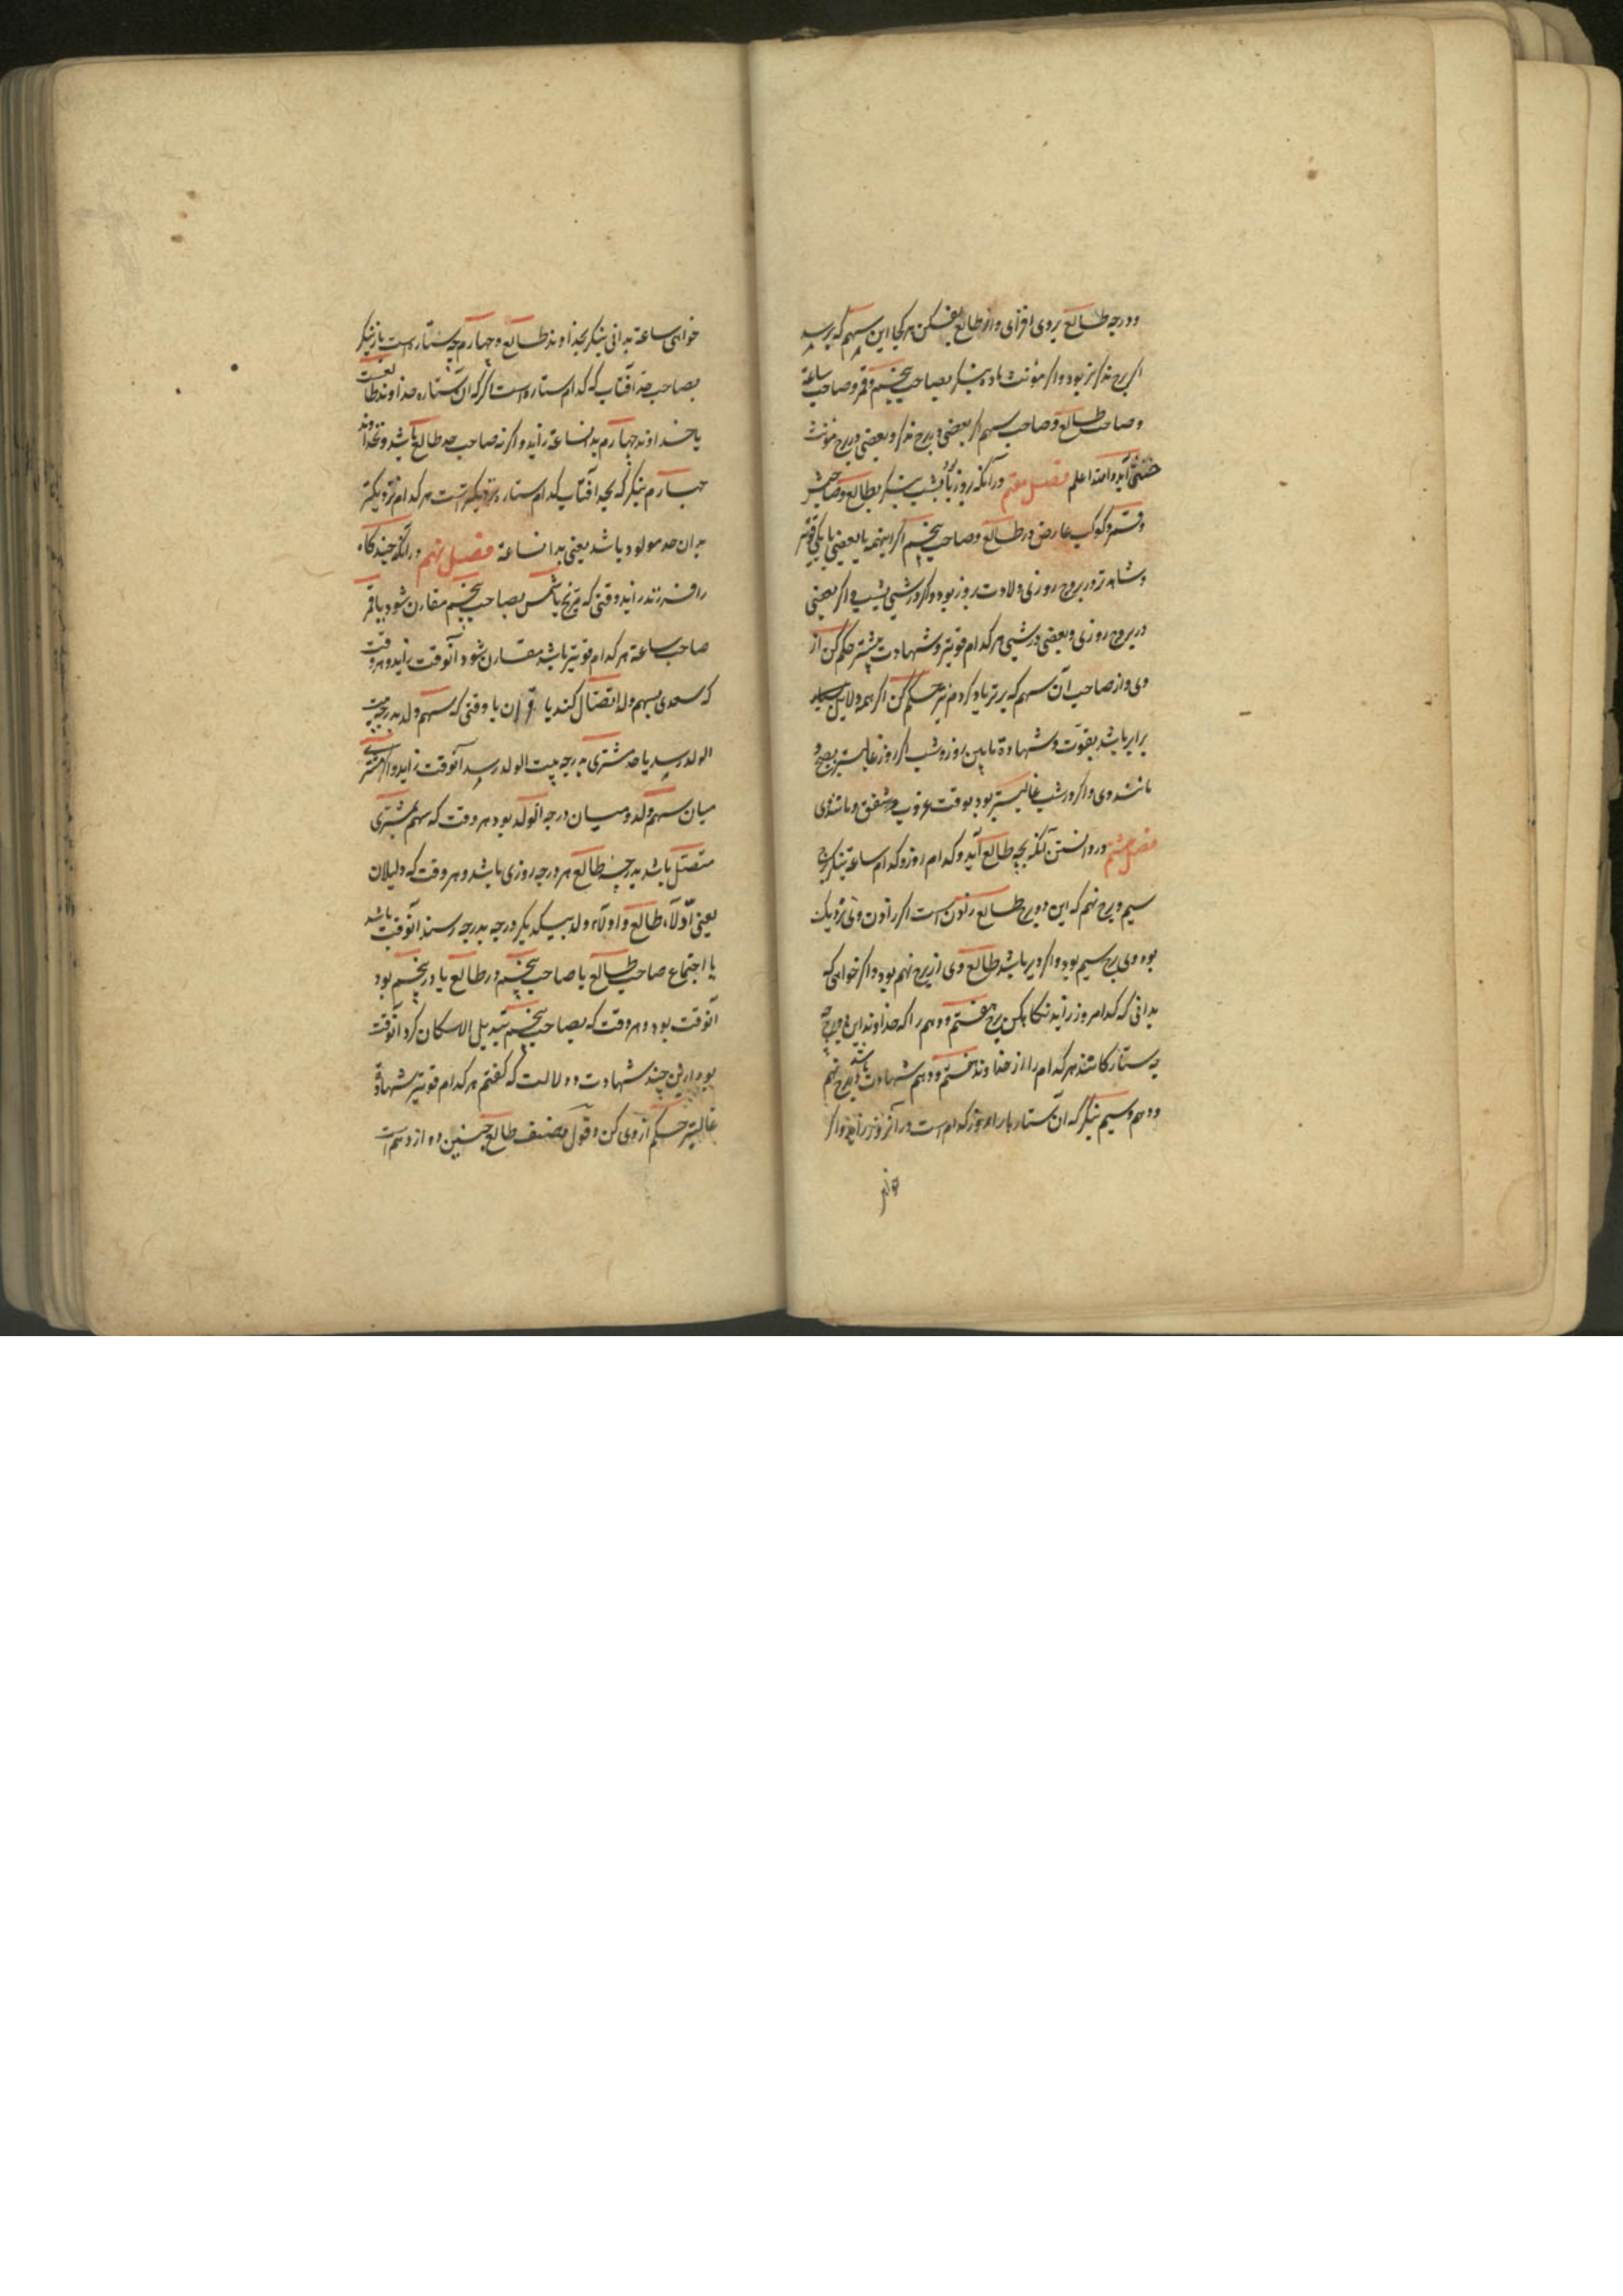 ودرجه طالع بروی افزای واز طالع بفکن هر کجا این سهم که برسد
اکر برج مذکر نر بود واکر مؤنث ماده بنکر بصاحب پنجم وقمر وصاحب ساعة
وصاحب طالع وصاحب سهم اکر بعضی در برج مذکر وبعضی در برج مؤنث
خنثی آید والله اعلم فصل هفتم در آنکه روز زاید یا بشب بنکر بطالع وصاحبش
وقمر وکوکب عارض در طالع وصاحب پنجم اکر اینهمه یا بعضی یا یکی قویتر
وشاهدتر در بروج روزی ولادت بروز بود واکر در شبی بشب واکر بعضی
در بروج روزی وبعضی در شبی هر کدام قویتر وشهادت بیشتر حکم کن از
وی واز صاحب آن سهم که برتر یاد کردم نیز حکم کن اکر همه دلایل
برابر باشد بقوت وشهادة مابین روز وشب اکر روز غالبتر بصبح و
مانند وی واکر در شب غالبتر بود بوقت غروب وشفق ومانند وی
فصل هشتم در دانستن آنکه بچه طالع آید وکدام روز وکدام ساعة بنکر ببرج
سیم وبرج نهم که این دو برج طالع زنون است اکر زنون وی نزدیک
بود وی برج سیم بود واکر دیر باشد طالع وی از برج نهم بود واکر خواهی که
بدانی که کدام روز زاید نکاه کن ببرج هفتم ودهم را که خداوند این دو برج
چه ستاره کانند هر کدام را از خداوند هفتم ودهم شهادت باشد در برج نهم
ودهم وسیم بنکر که آن ستاره را روز کدام است در آنروز زاید واکر
خواهی
خواهی ساعة بدانی بنکر بخداوند طالع وچهارم چه ستاره است باز بنکر
بصاحب حد آفتاب که کدام ستاره است اکر که آن ستاره خداوند طالعست
یا خداوند چهارم بدان ساعة زاید واکر نه صاحب حد طالع باشد ونخداوند
چهارم بنکر که بحد آفتاب کدام ستاره نزدیکتر است هر کدام نزدیکتر
بدان حد مولود باشد یعنی بدانساعة فصل نهم در آنکه چند کاه
را فرزند زاید وقتی که مریخ یا شمس بصاحب پنجم مقارن شود یا قمر
صاحب ساعة هر کدام قویتر باشد مقارن شود آنوقت زاید وهر وقت
که سعدی بسهم ولد اتصال کند یا قران یا وقتی که سهم ولد بدرجه بیت
الولد رسد یا حد مشتری بدرجه بیت الولد رسد آنوقت زاید واکر مشتری
میان سهم ولد ومیان درجه الولد بود هر وقت که سهم بمشتری
متصل باشد بدرجه طالع هر درجه روزی باشد وهر وقت که دلیلان
یعنی اولاء طالع واولاء ولد بیکدیکر درجه بدرجه رسند آنوقت باشد
یا اجتماع صاحب طالع با صاحب پنجم در طالع یا در پنجم بود
آنوقت بود وهر وقت که بصاحب پنجم تبدیل الامکان کرد آنوقت
بود ازین چند شهادت ودلالت که کفتم هر کدام قویتر وشهادة
غالبتر حکم از وی کن وقول مصنف طالع جنین دوازدهم است